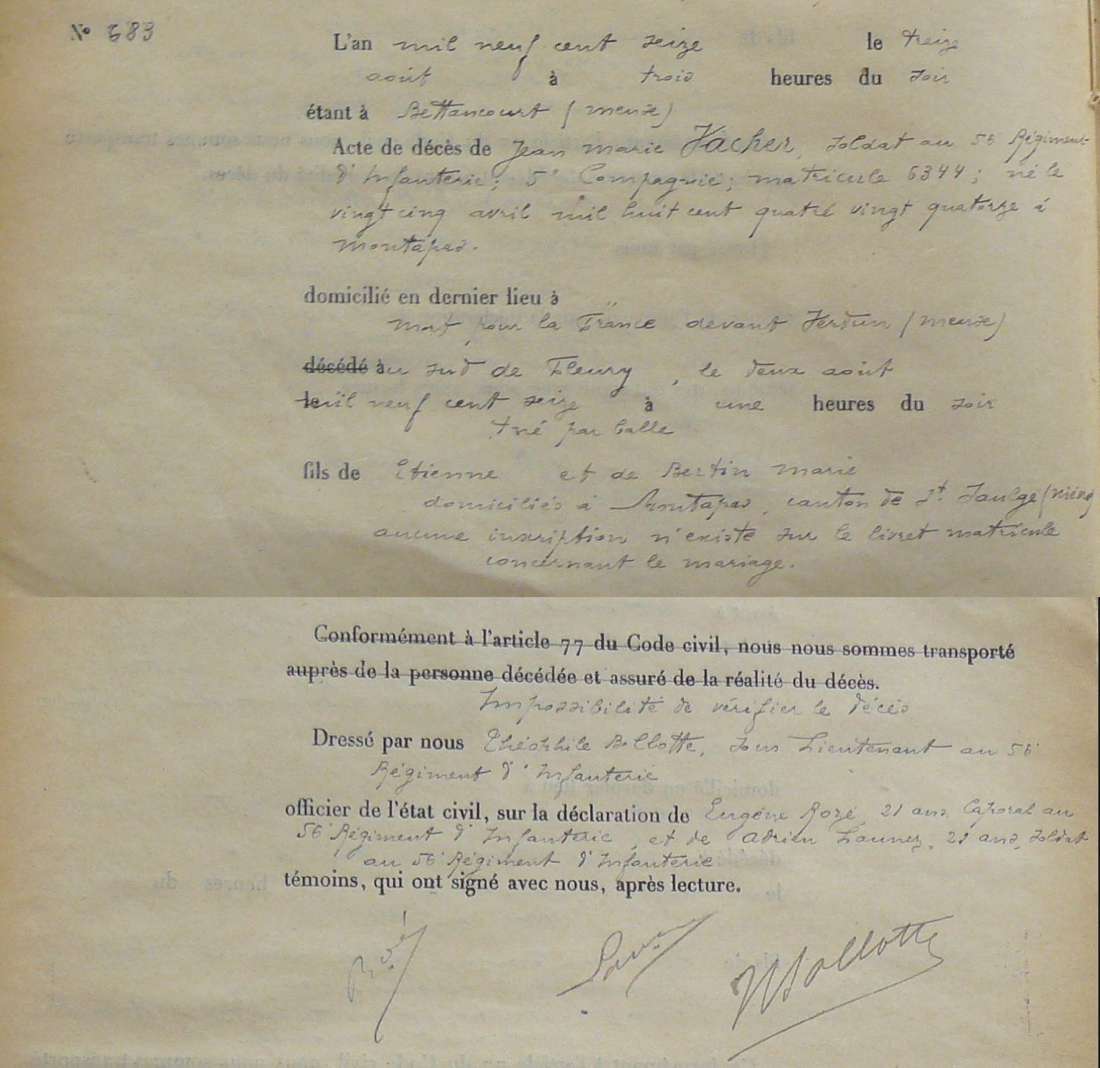 N° 383
L'an mil neuf cent seize le treize
août à trois heures du soir
étant à Bettancourt (meuse)
Acte de décès de Jean marie Vacher, soldat au 56 Régiment
d'Infanterie; 5e Compagnie; matricule 6344; né le
vingt cinq avril mil huit cent quatre vingt quatorze à
montapas.
domicilié en dernier lieu à
mort pour la France devant Verdun (meuse)
décédé au sud de Fleury, le deux août
le mil neuf cent seize à une heures du soir
tué par balle
fils de Etienne et de Bertin marie
domiciliés à Montapas, canton de St Saulge (nièvre)
aucune inscription n'existe sur le livret matricule
concernant le mariage.
Conformément à l'article 77 du Code civil, nous nous sommes transporté
auprès de la personne décédée et assuré de la réalité du décès.
Impossibilité de vérifier le décès
Dressé par nous Théophile Bollotte, sous Lieutenant au 56e
Régiment d'Infanterie
officier de l'état civil, sur la déclaration de Eugène Rozé, 21 ans, Caporal au
56e Régiment d'Infanterie, et de Adrien Launez, 21 ans, soldat
au 56e Régiment d'Infanterie
témoins, qui ont signé avec nous, après lecture.
Bollotte